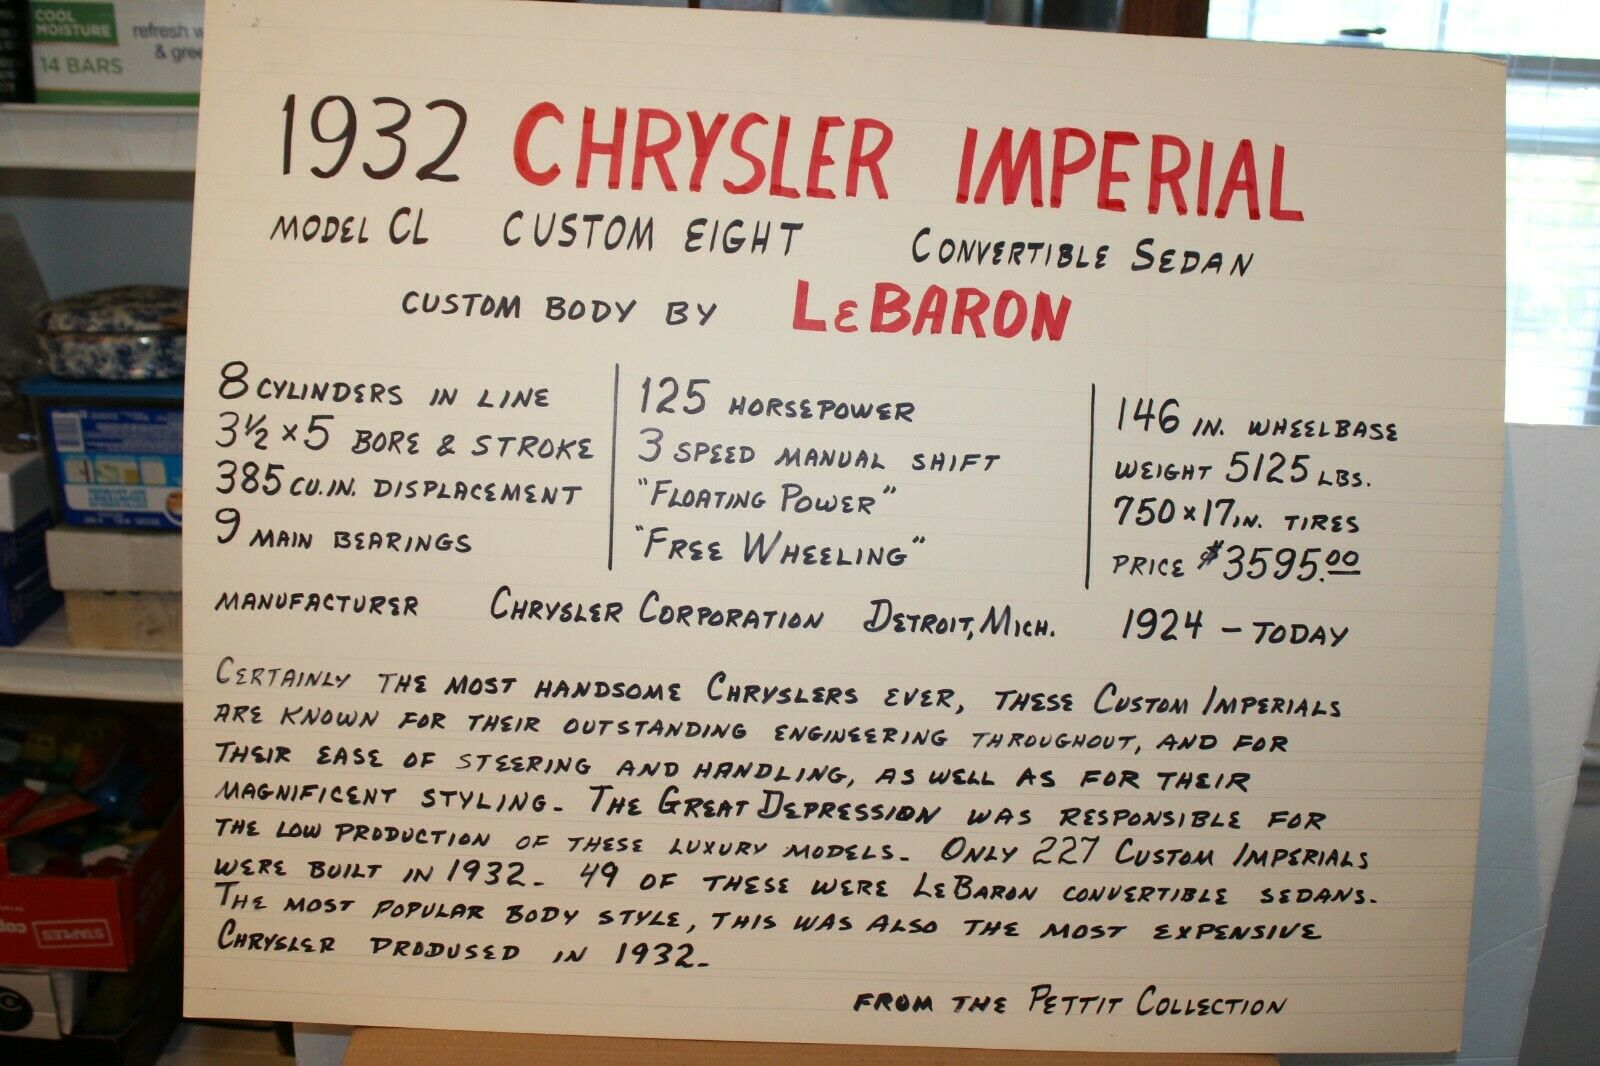 COOL MOISTURE
refresh
& gree
14 BARS
1932 CHRYSLER IMPERIAL
MODEL CL CUSTOM EIGHT CONVERTIBLE SEDAN
CUSTOM BODY BY LEBARON
8 CYLINDERS IN LINE
3½ x 5 BORE & STROKE
385 CU. IN. DISPLACEMENT
9 MAIN BEARINGS
125 HORSEPOWER
3 SPEED MANUAL SHIFT
"FLOATING POWER"
"FREE WHEELING"
146 IN. WHEELBASE
WEIGHT 5125 LBS.
750 x 17 IN. TIRES
PRICE $3595.00
MANUFACTURER CHRYSLER CORPORATION DETROIT, MICH. 1924 - TODAY
CERTAINLY THE MOST HANDSOME CHRYSLERS EVER, THESE CUSTOM IMPERIALS
ARE KNOWN FOR THEIR OUTSTANDING ENGINEERING THROUGHOUT, AND FOR
THEIR EASE OF STEERING AND HANDLING, AS WELL AS FOR THEIR
MAGNIFICENT STYLING. THE GREAT DEPRESSION WAS RESPONSIBLE FOR
THE LOW PRODUCTION OF THESE LUXURY MODELS. ONLY 227 CUSTOM IMPERIALS
WERE BUILT IN 1932. 49 OF THESE WERE LEBARON CONVERTIBLE SEDANS.
THE MOST POPULAR BODY STYLE, THIS WAS ALSO THE MOST EXPENSIVE
CHRYSLER PRODUSED IN 1932.
FROM THE PETTIT COLLECTION
STAPLES